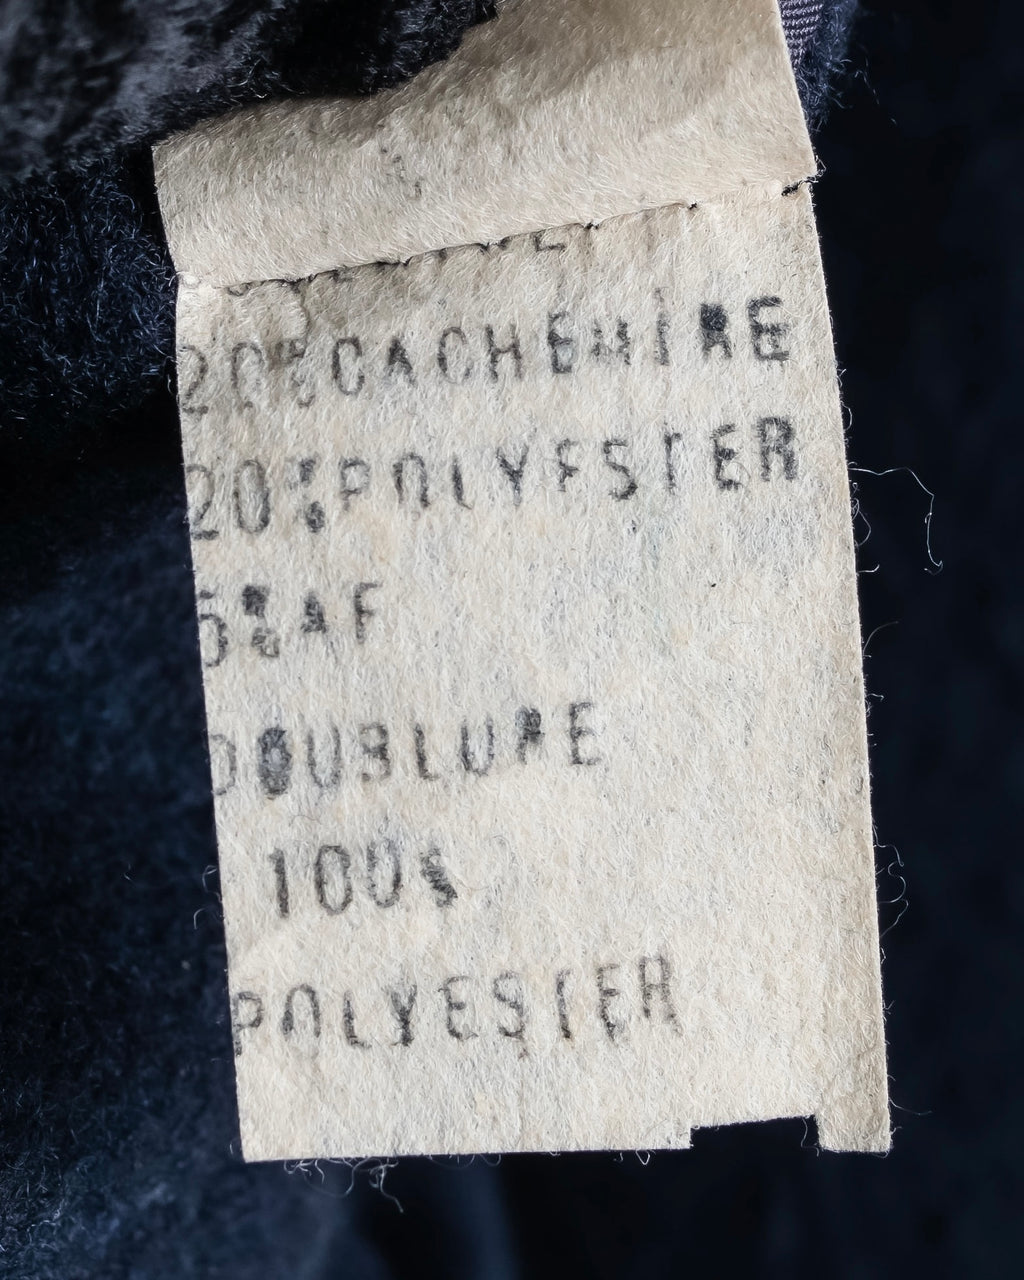 20%CACHEMIRE
20%POLYESTER
5%AF
DOUBLURE
100%
POLYESTER